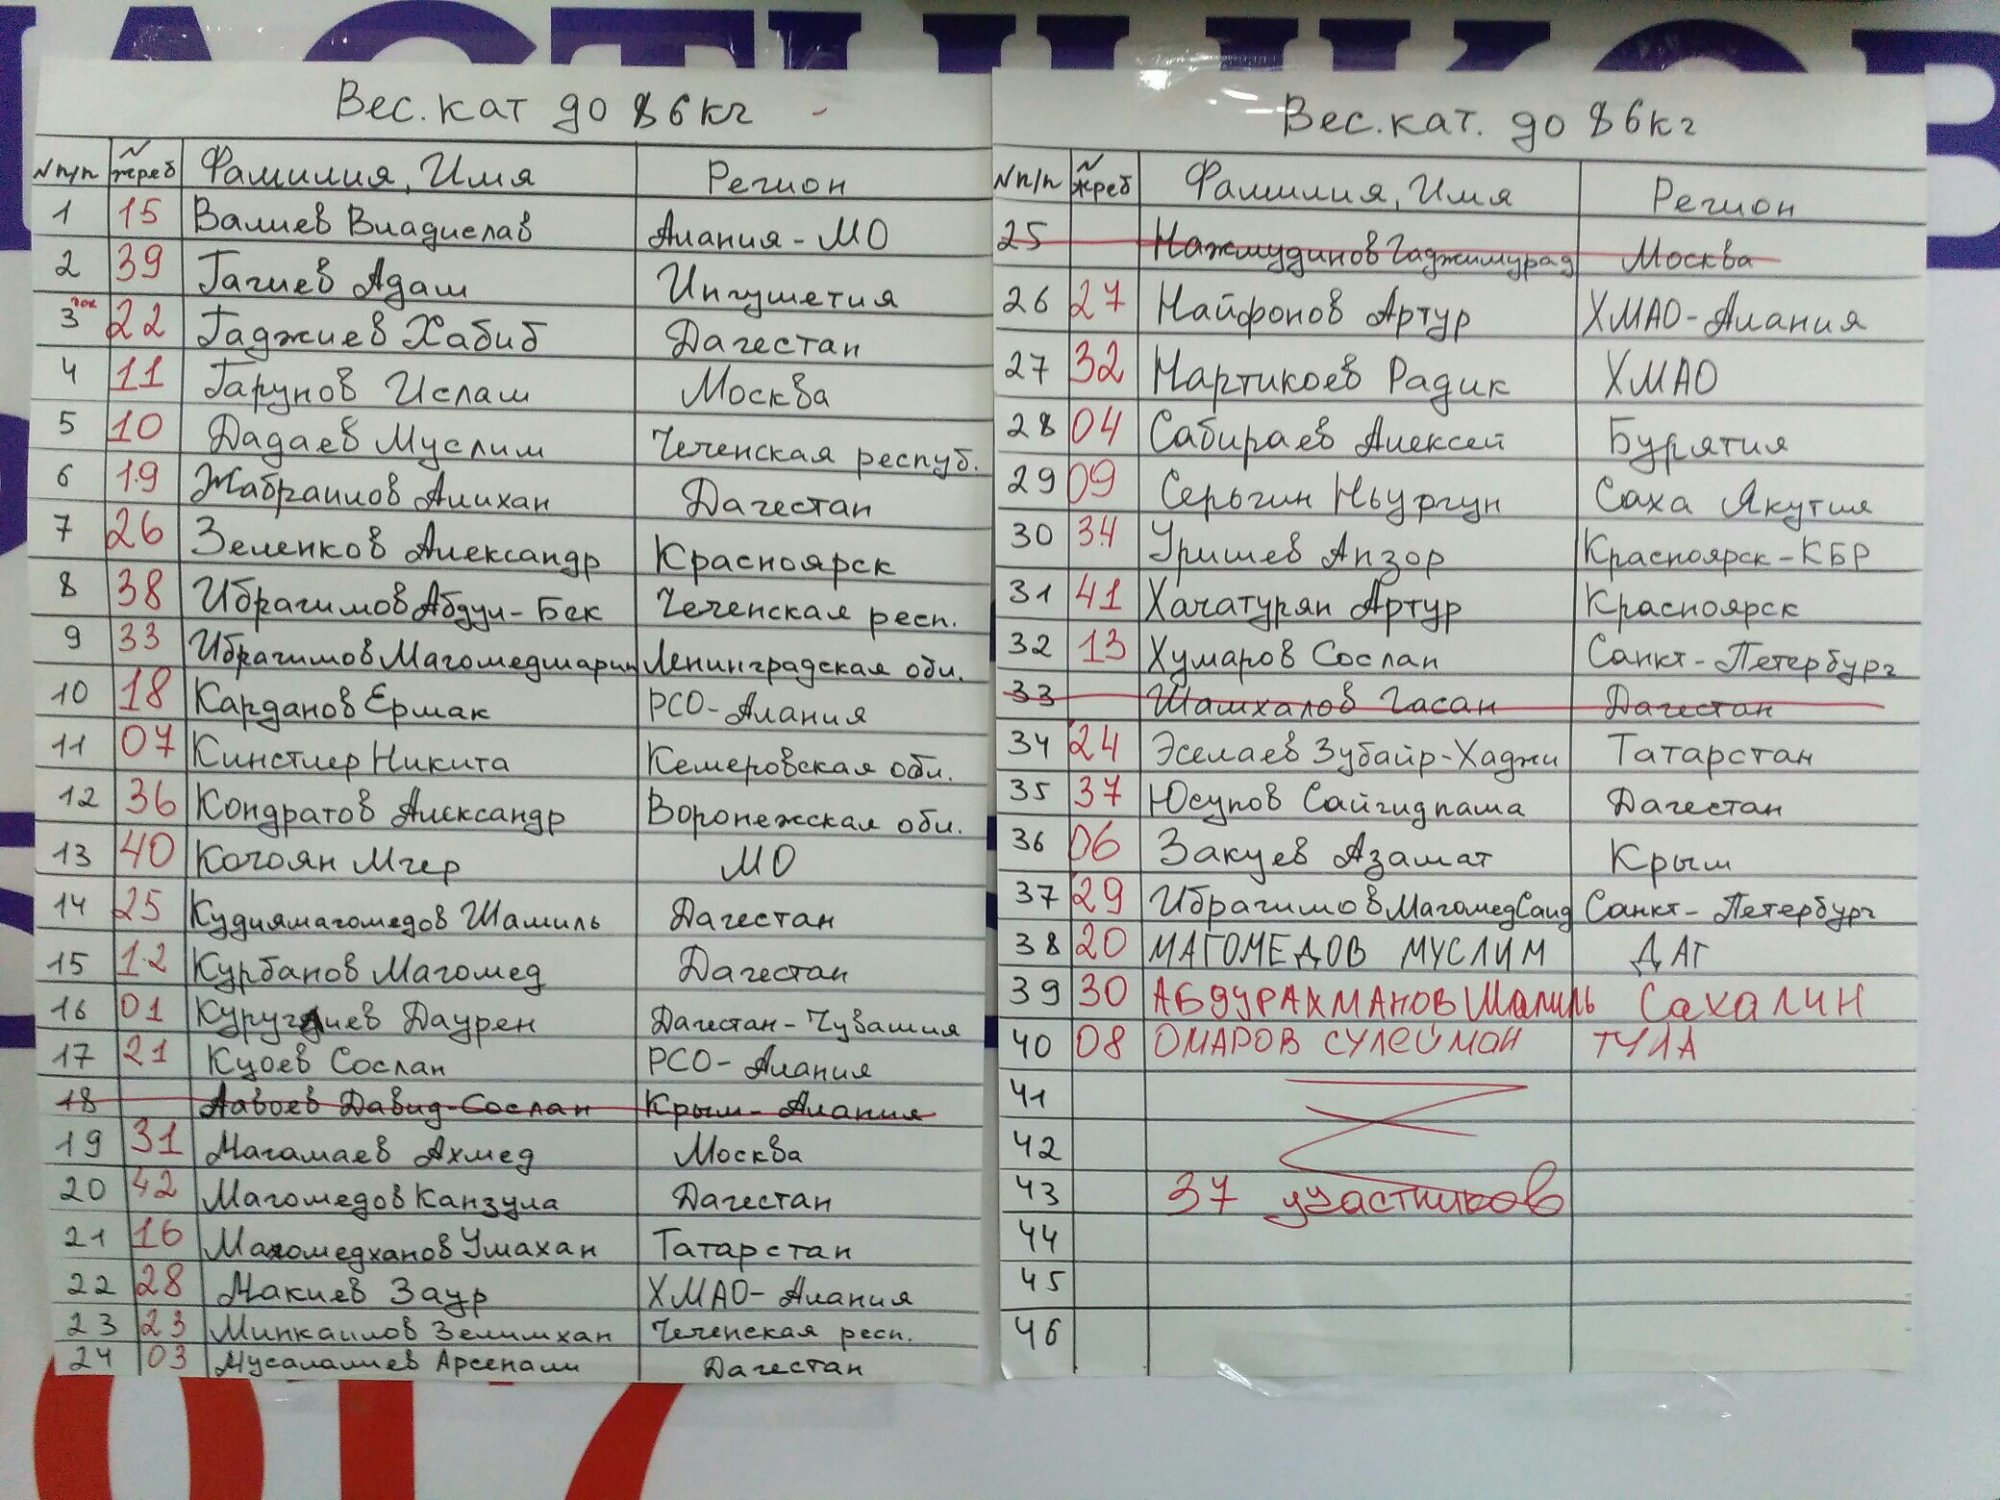 Вес. кат до 86кг
N п/п № жреб Фамилия, Имя Регион
1 15 Валиев Владислав Алания - МО
2 39 Гагиев Адам Ингушетия
3 22 Гаджиев Хабиб Дагестан
4 11 Гарунов Ислам Москва
5 10 Дадаев Муслим Чеченская респуб.
6 19 Жабраилов Алихан Дагестан
7 26 Зеленков Александр Красноярск
8 38 Ибрагимов Абдул-Бек Чеченская респ.
9 33 Ибрагимов Магомедшарип Ленинградская обл.
10 18 Карданов Ермак РСО-Алания
11 07 Кинстлер Никита Кемеровская обл.
12 36 Кондратов Александр Воронежская обл.
13 40 Когоян Мгер МО
14 25 Кудиямагомедов Шамиль Дагестан
15 12 Курбанов Магомед Дагестан
16 01 Куруглиев Даурен Дагестан-Чувашия
17 21 Куоев Сослан РСО-Алания
18 Давид-Сослан Крым-Алания
19 31 Магамаев Ахмед Москва
20 42 Магомедов Канзула Дагестан
21 16 Магомедханов Умахан Татарстан
22 28 Макиев Заур ХМАО-Алания
23 23 Минкаилов Зелимхан Чеченская респ.
24 03 Мусалалиев Арсенали Дагестан
Вес. кат. до 86кг
N п/п № жреб Фамилия, Имя Регион
25 Нажмудинов Гаджимурад Москва
26 27 Найфонов Артур ХМАО-Алания
27 32 Нартикоев Радик ХМАО
28 04 Сабираев Алексей Бурятия
29 09 Серьгин Ньургун Саха Якутия
30 34 Уришев Анзор Красноярск-КБР
31 41 Хачатурян Артур Красноярск
32 13 Хумаров Сослан Санкт-Петербург
33 Шамхалов Гасан Дагестан
34 24 Эселаев Зубайр-Хаджи Татарстан
35 37 Юсупов Сайгидпаша Дагестан
36 06 Закуев Азамат Крым
37 29 Ибрагимов МагомедСаид Санкт-Петербург
38 20 МАГОМЕДОВ МУСЛИМ ДАГ
39 30 АБДУРАХМАНОВ Шамиль Сахалин
40 08 ОМАРОВ СУЛЕЙМАН ТУЛА
41
42
43 37 участников
44
45
46